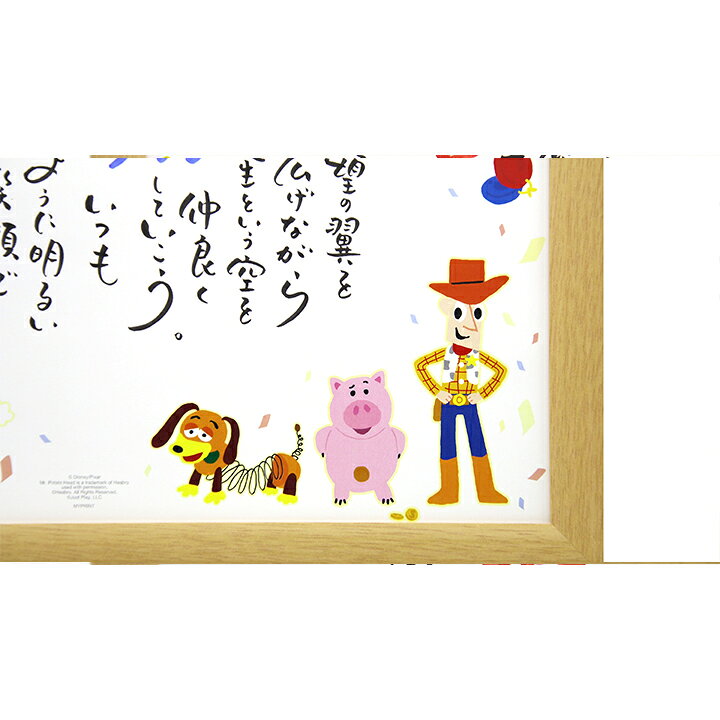 望の翼を
広げながら
生という空を
仲良く
していこう。
いつも
ように明るい
笑顔で
© Disney/Pixar
Mr. Potato Head is a trademark of Hasbro
used with permission.
©Hasbro. All Rights Reserved.
©Just Play, LLC
MYPRINT